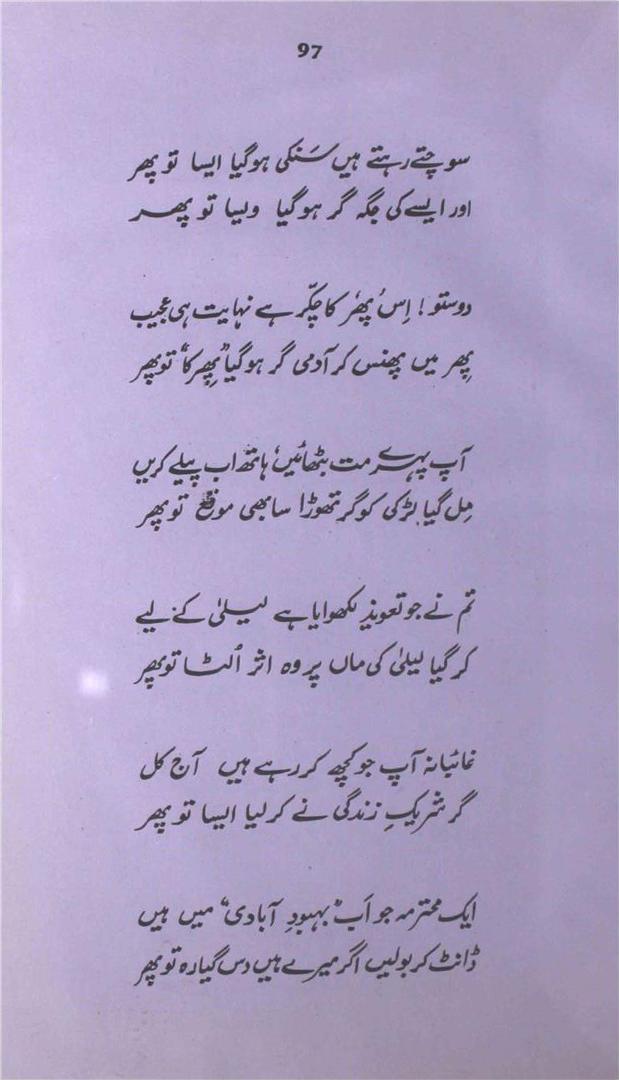 97
سوچتے رہتے ہیں سَنکی ہوگیا ایسا تو پھر
اور ایسے کی جگہ گر ہوگیا ویسا تو پھر
دوستو! اِس ’پھر‘ کا چکّر ہے نہایت ہی عجیب
پھر میں پھنس کر آدمی گر ہوگیا ”پِھرکا“ تو پھر
آپ پہرے مت بٹھائیں‘ ہاتھ اب پیلے کریں
مِل گیا لڑکی کو گر تھوڑا سا بھی موقع تو پھر
تم نے جو تعویذ لکھوایا ہے لیلیٰ کے لیے
کر گیا لیلیٰ کی ماں پر وہ اثر اُلٹا تو پھر
غائبانہ آپ جو کچھ کر رہے ہیں آج کل
گر شریکِ زندگی نے کر لیا ایسا تو پھر
ایک محترمہ جو اَب ”بہبودِ آبادی“ میں ہیں
ڈانٹ کر بولیں اگر میرے ہیں دس گیارہ تو پھر